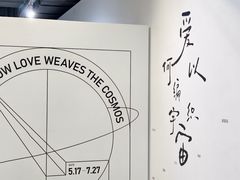 OW LOVE WEAVES THE COSMOS
5.17 - 7.27
爱以
何编织
宇宙